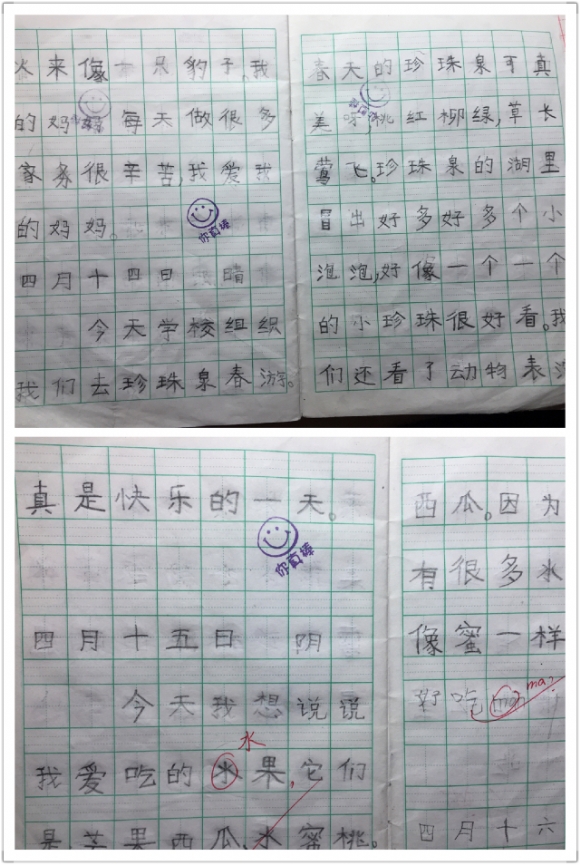 火来像一只豹子,我
的妈妈每天做很多
家务很辛苦,我爱我
的妈妈。
你真棒
四月十四日 晴
今天学校组织
我们去珍珠泉春游。
春天的珍珠泉可真
美呀,桃红柳绿,草长
莺飞。珍珠泉的湖里
冒出好多好多个小
泡泡,好像一个一个
的小珍珠很好看。我
们还看了动物表
真是快乐的一天。
你真棒
四月十五日 阴
今天我想说说
水
我爱吃的水果,它们
是苹果西瓜,水蜜桃。
西瓜。因为
有很多水
像蜜一样
好吃
ma?
四月十六